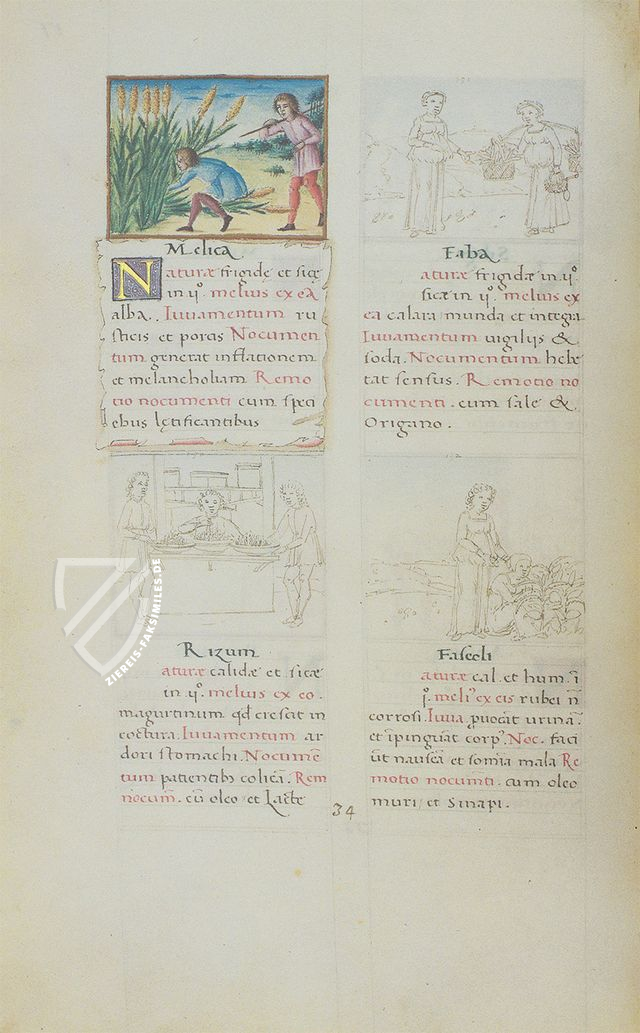 Melica
Naturæ frigidę et sicę
in ijº. melius ex ea
alba. Iuuamentum ru
sticis et porcis Nocumen
tum generat inflationem
et melancholiam Remo
tio nocumenti cum speci
ebus lętificantibus
Faba
aturæ frigidæ in ijº.
sicæ in ijº. melius ex
ea calara munda et integra
Iuuamentum uigilijs &
soda. Nocumentum hebe
tat sensus. Remotio no
cumenti. cum sale &
Origano.
Rizum
aturæ calidæ et sicæ
in ijº. melius ex eo.
magurtinum qđ crescat in
coctura. Iuuamentum ar
dori stomachi. Nocumē
tum patientibꝰ colicā. Rem
nocum̄. cū oleo et Lacte
Faseoli
aturæ cal. et hum. ī
iº. meliꝰ ex eis rubei n̄
corrosi. Iuua ꝓuocāt urinā.
et īpinguāt corpꝰ. Noc. faci
ūt nauseā et somia mala Re
motio nocum̄ti. cum oleo
muri et Sinapi.
34
ZIEREIS-FAKSIMILES.DE